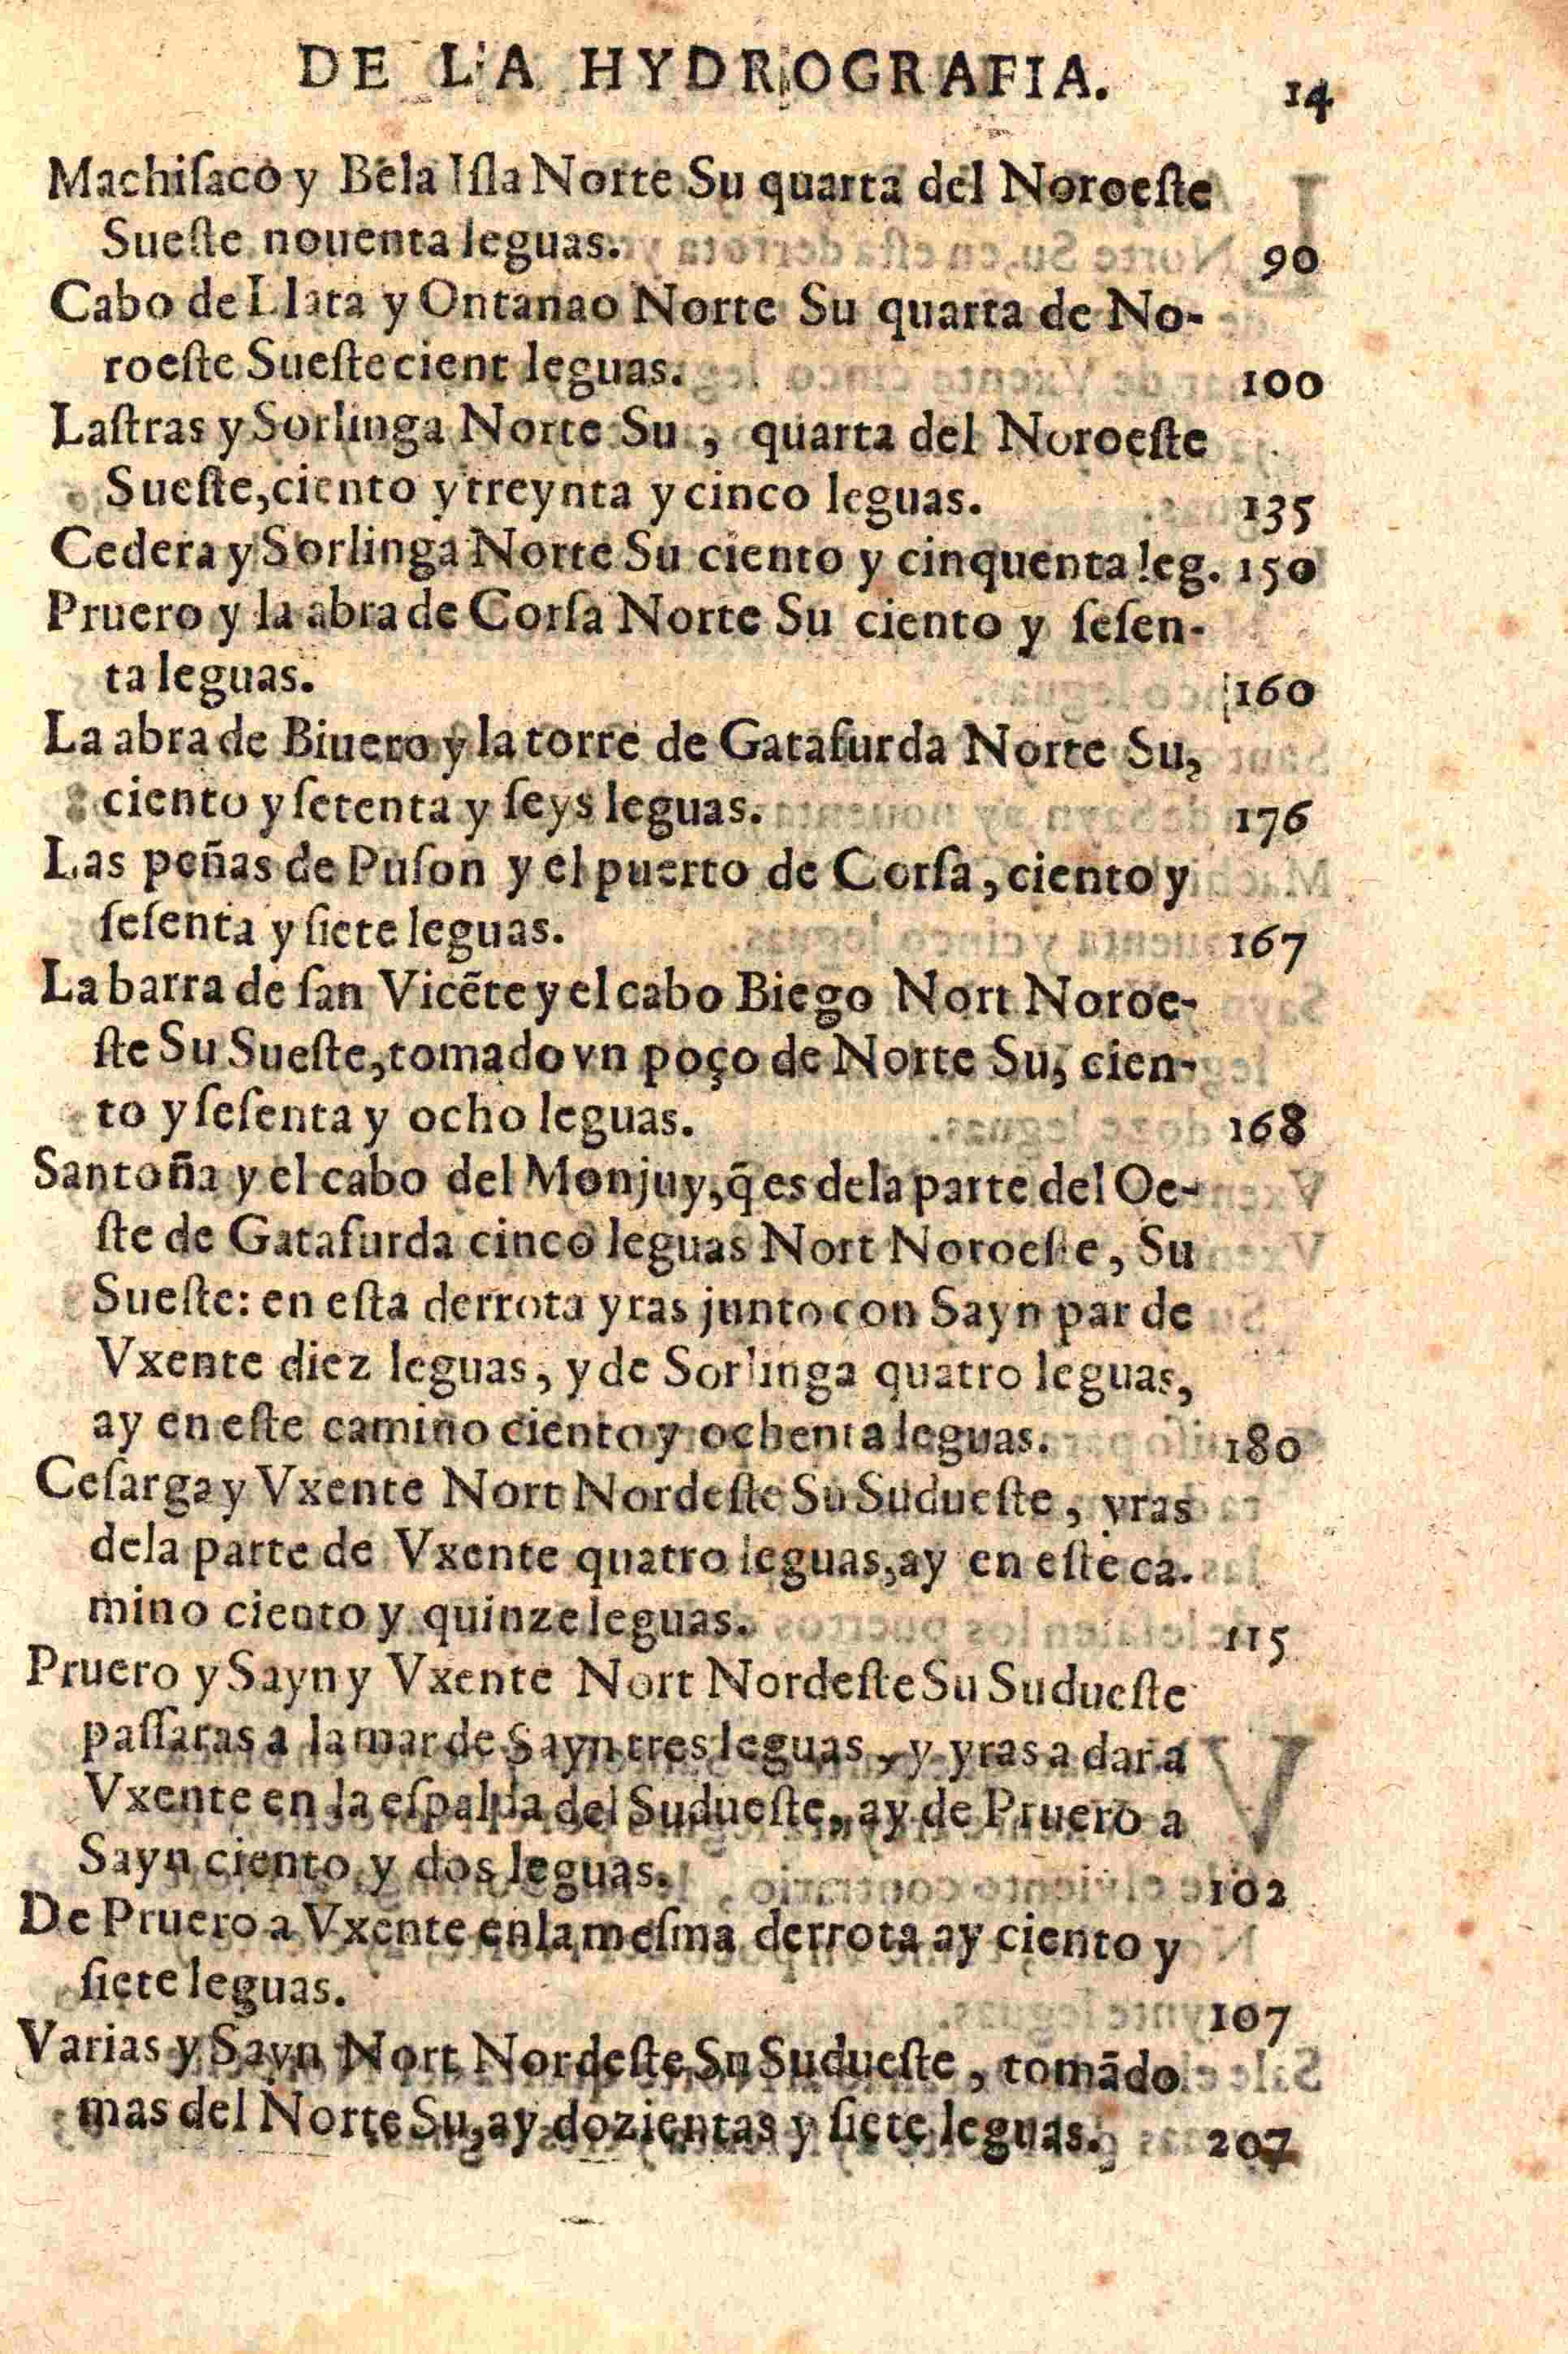 DE LA HYDROGRAFIA. 14
Machiſaco y Bela Iſla Norte Su quarta del Noroeſte
Sueſte nouenta leguas. 90
Cabo de Llata y Ontanao Norte Su quarta de No-
roeſte Sueſte cient leguas. 100
Laſtras y Sorlinga Norte Su, quarta del Noroeſte
Sueſte, ciento y treynta y cinco leguas. 135
Cedera y Sorlinga Norte Su ciento y cinquenta leg. 150
Pruero y la abra de Corſa Norte Su ciento y ſeſen-
ta leguas. 160
La abra de Biuero y la torre de Gatafurda Norte Su,
ciento y ſetenta y ſeys leguas. 176
Las peñas de Puſon y el puerto de Corſa, ciento y
ſeſenta y ſiete leguas. 167
La barra de ſan Vicẽte y el cabo Biego Nort Noroe-
ſte Su Sueſte, tomado vn poço de Norte Su, cien-
to y ſeſenta y ocho leguas. 168
Santoña y el cabo del Monjuy, q̃ es dela parte del Oe-
ſte de Gatafurda cinco leguas Nort Noroeſte, Su
Sueſte: en eſta derrota yras junto con Sayn par de
Vxente diez leguas, y de Sorlinga quatro leguas,
ay en eſte camino ciento y ochenta leguas. 180
Ceſarga y Vxente Nort Nordeſte Su Sudueſte, yras
dela parte de Vxente quatro leguas, ay en eſte ca-
mino ciento y quinze leguas. 115
Pruero y Sayn y Vxente Nort Nordeſte Su Sudueſte
paſſaras a la mar de Sayn tres leguas, y yras a dar a
Vxente en la eſpalda del Sudueſte, ay de Pruero a
Sayn ciento y dos leguas. 102
De Pruero a Vxente enla meſma derrota ay ciento y
ſiete leguas. 107
Varias y Sayn Nort Nordeſte Su Sudueſte, tomãdo
mas del Norte Su, ay dozientas y ſiete leguas. 207